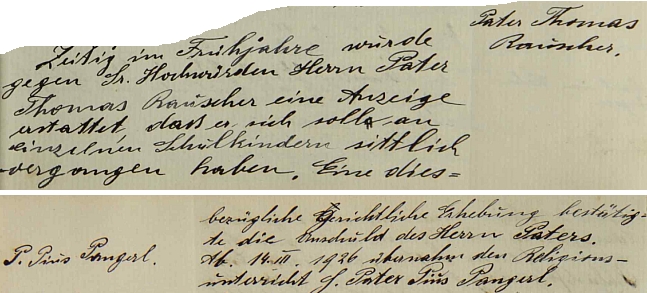 Pater Thomas
Rauscher.
Zeitig im Frühjahre wurde
gegen Sr. Hochwürden Herrn Pater
Thomas Rauscher eine Anzeige
erstattet, daß er sich sollt an
einzelnen Schulkindern sittlich
vergangen haben. Eine dies=
P. Pius Pangerl.
bezügliche Gerichtliche Ehebung bestätig=
te die Unschuld des Herrn Paters.
Ab. 14. III. 1926 übernahm den Religions-
unterricht H. Pater Pius Pangerl.